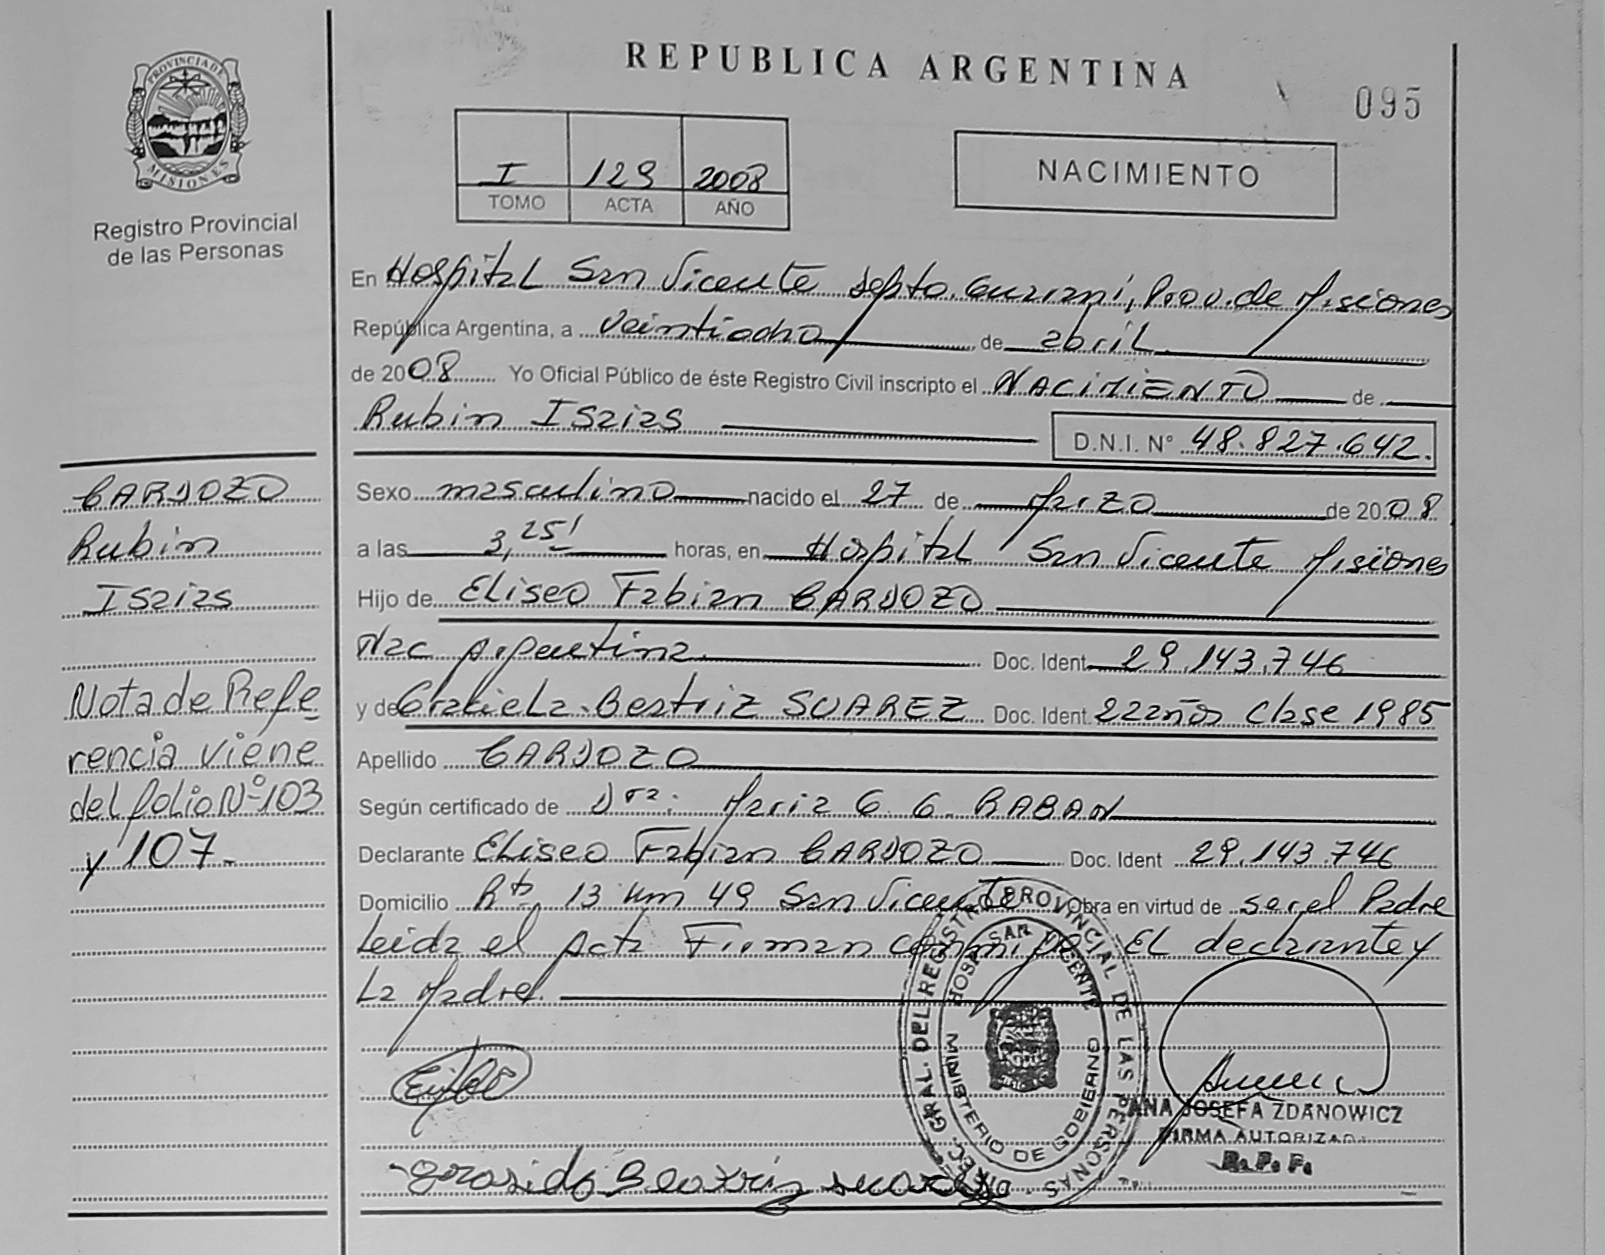 REPUBLICA ARGENTINA
095
PROVINCIA DE MISIONES
Registro Provincial
de las Personas
I 129 2008
TOMO ACTA AÑO
NACIMIENTO
En Hospital San Vicente Depto. Guarani, Prov. de Misiones
República Argentina, a veintiocho de abril
de 2008 Yo Oficial Público de éste Registro Civil inscripto el NACIMIENTO de
Rubin Isaias D.N.I. Nº 48.827.642.
CARDOZO
Rubin
Isaias
Nota de Refe
rencia viene
del folio Nº 103
y 107-
Sexo masculino nacido el 27 de Marzo de 2008
a las 3,25' horas, en Hospital San Vicente Misiones
Hijo de Eliseo Fabian CARDOZO
Nac Argentina Doc. Ident 29.143.746
y de Graciela Beatriz SUAREZ Doc. Ident. 22 años Clase 1985
Apellido CARDOZO
Según certificado de Dra: Maria G. G. RABAN
Declarante Eliseo Fabian CARDOZO Doc. Ident 29.143.746
Domicilio Rta 13 Km 49 San Vicente Obra en virtud de ser el Padre
Leida el Acta Firman conmigo EL declarante y
La Madre.
DIREC. GRAL. DEL REGISTRO PROVINCIAL DE LAS PERSONAS
HOSP. SAN VICENTE
MINISTERIO DE GOBIERNO
ANA JOSEFA ZDANOWICZ
FIRMA AUTORIZADA
R. P. P.
Beatriz Suarez